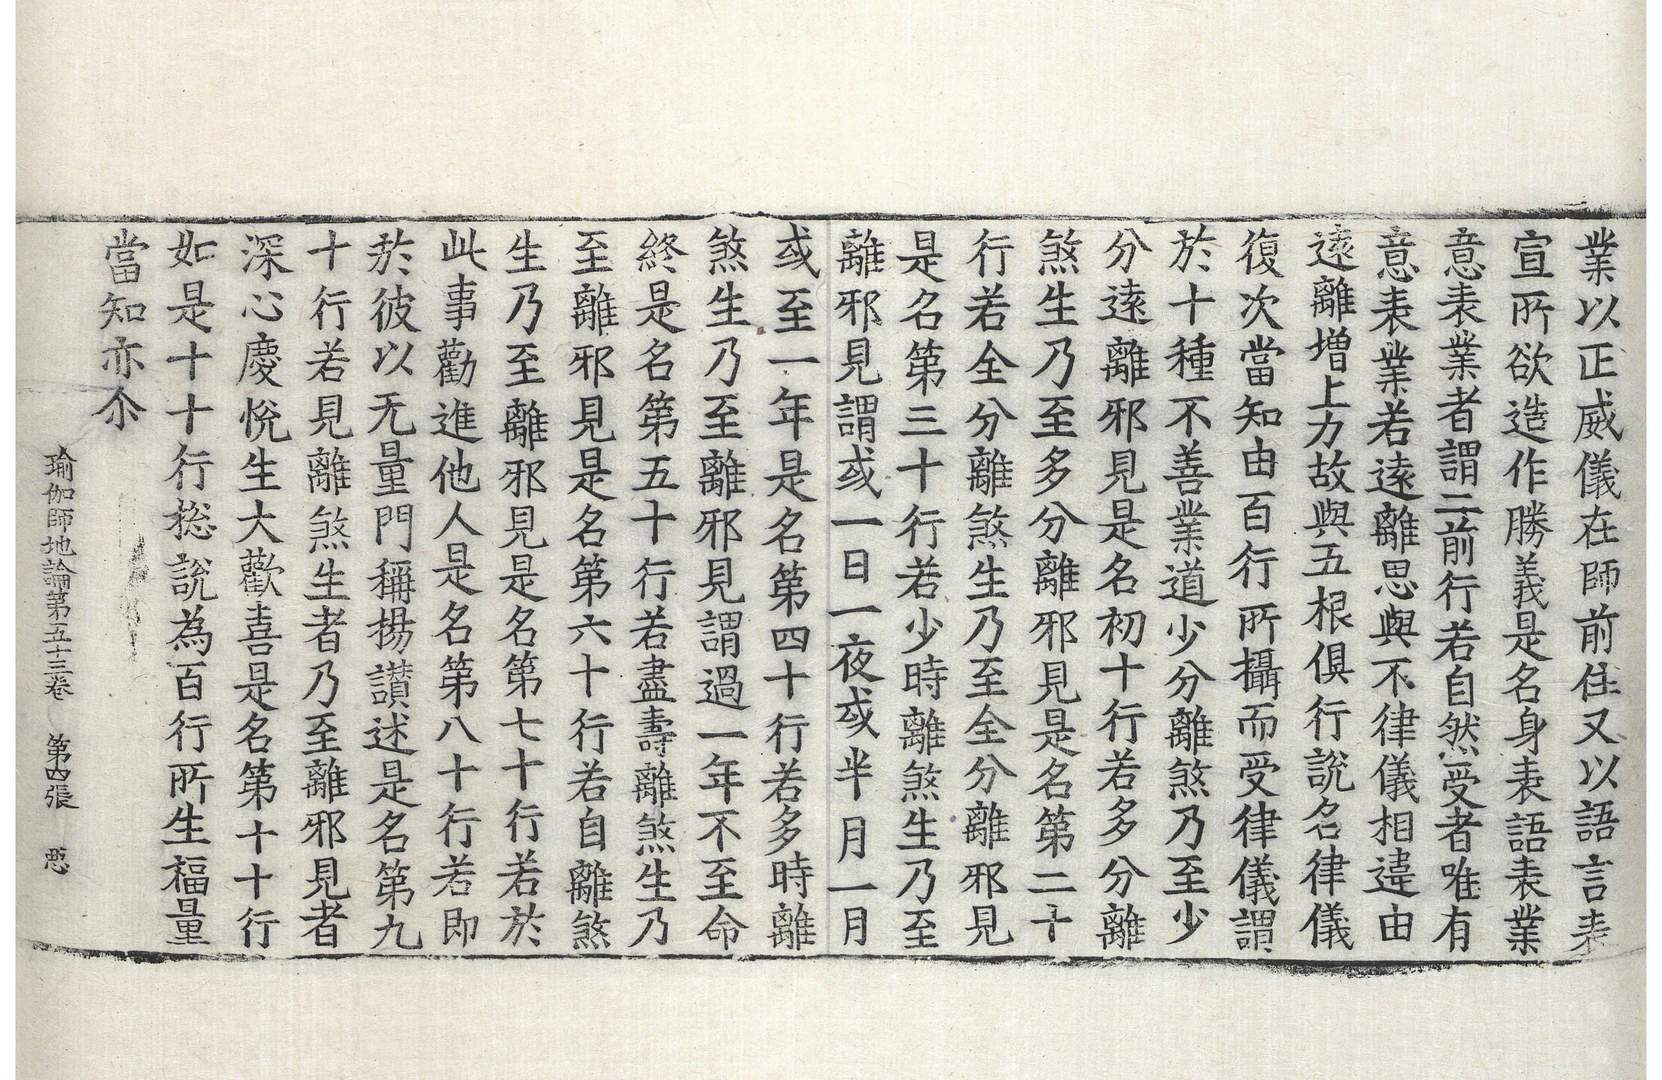 業以正威儀在師前住又以語言表
宣所欲造作勝義是名身表語表業
意表業者謂二前行若自然受者唯有
意表業若遠離思與不律儀相違由
遠離增上力故與五根俱行說名律儀
復次當知由百行所攝而受律儀謂
於十種不善業道少分離煞乃至少
分遠離邪見是名初十行若多分離
煞生乃至多分離邪見是名第二十
行若全分離煞生乃至全分離邪見
是名第三十行若少時離煞生乃至
離邪見謂或一日一夜或半月一月
或至一年是名第四十行若多時離
煞生乃至離邪見謂過一年不至命
終是名第五十行若盡壽離煞生乃
至離邪見是名第六十行若自離煞
生乃至離邪見是名第七十行若於
此事勸進他人是名第八十行若即
於彼以无量門稱揚讃述是名第九
十行若見離煞生者乃至離邪見者
深心慶悅生大歡喜是名第十十行
如是十十行捴說為百行所生福量
當知亦尒
瑜伽師地論第五十三卷 第四張